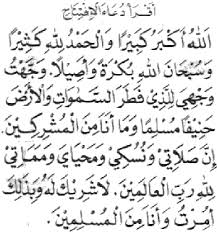 أقرأ دعاء الإفتتاح
اَللهُ أَكْبَرُ كَبِيْرًا وَالْحَمْدُ لِلهِ كَثِيْرًا
وَسُبْحَانَ اللهِ بُكْرَةً وَأَصِيْلًا. وَجَّهْتُ
وَجْهِيَ لِلَّذِيْ فَطَرَ السَّمٰوَاتِ وَالْأَرْضَ
حَنِيْفًا مُسْلِمًا وَمَا أَنَا مِنَ الْمُشْرِكِيْنَ.
إِنَّ صَلَاتِيْ وَنُسُكِيْ وَمَحْيَايَ وَمَمَاتِيْ
لِلهِ رَبِّ الْعَالَمِيْنَ. لَا شَرِيْكَ لَهُ وَبِذٰلِكَ
أُمِرْتُ وَأَنَا مِنَ الْمُسْلِمِيْنَ.